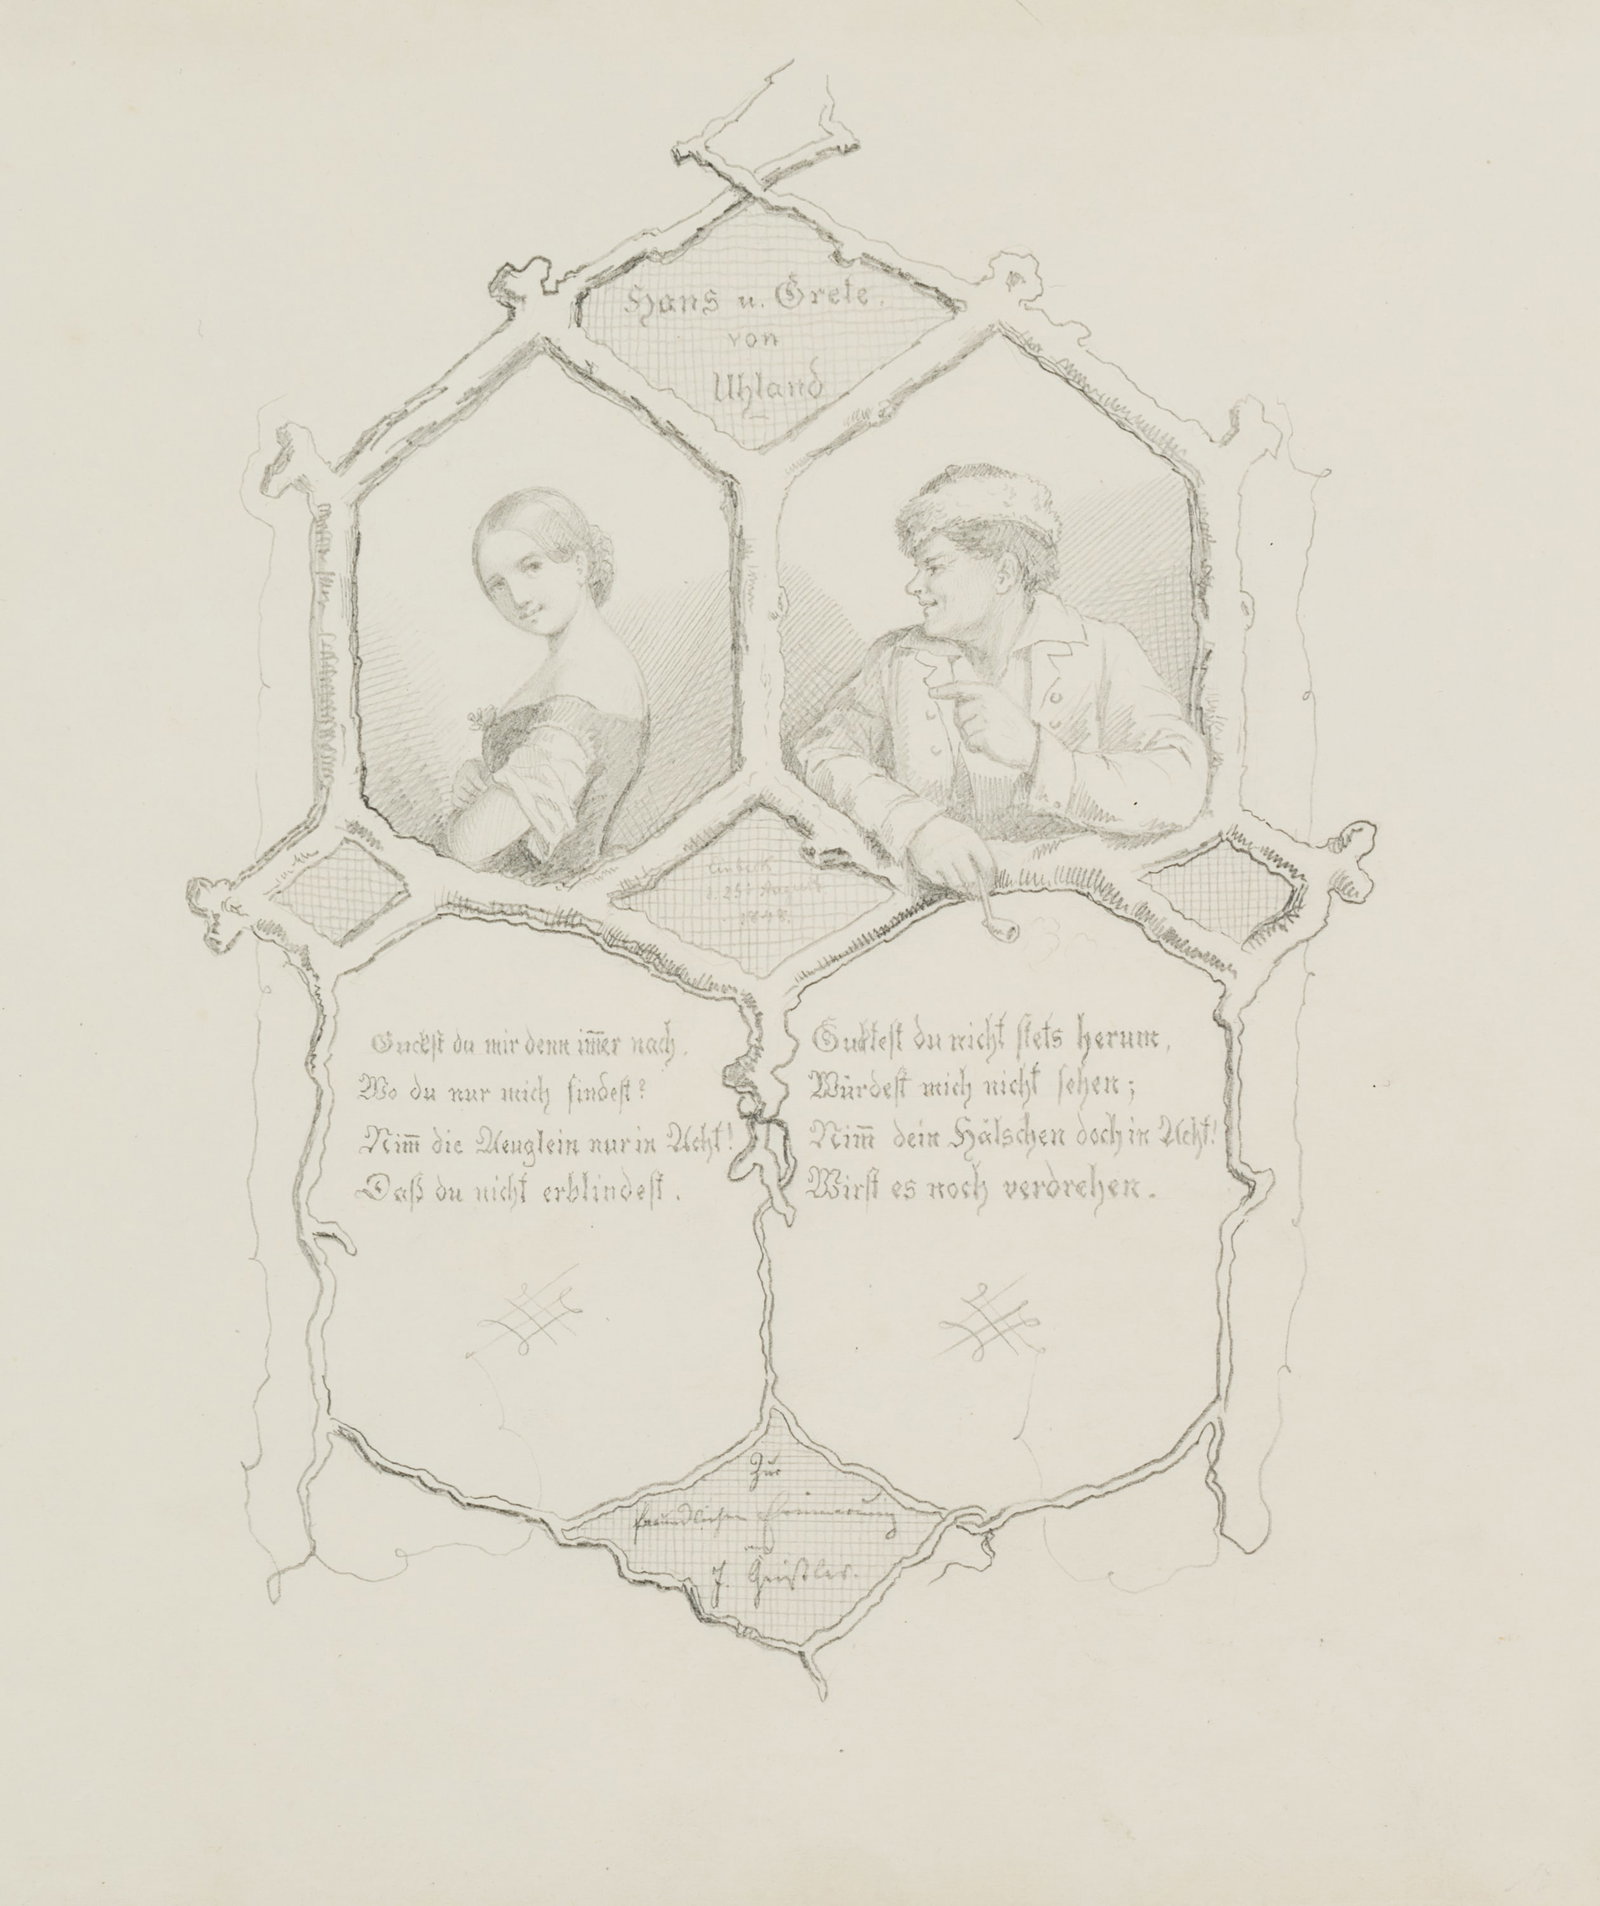 Hans u. Grete.
von
Uhland
d. 25t August
Guckst du mir denn im̅er nach,
Wo du nur mich findest?
Nim̅ die Aeuglein nur in Acht!
Daß du nicht erblindest.
Guktest du nicht stets herum,
Würdest mich nicht sehen;
Nim̅ dein Hälschen doch in Acht!
Wirst es noch verdrehen.
Zur
freundlichen Erinnerung
von
J. Geißler.